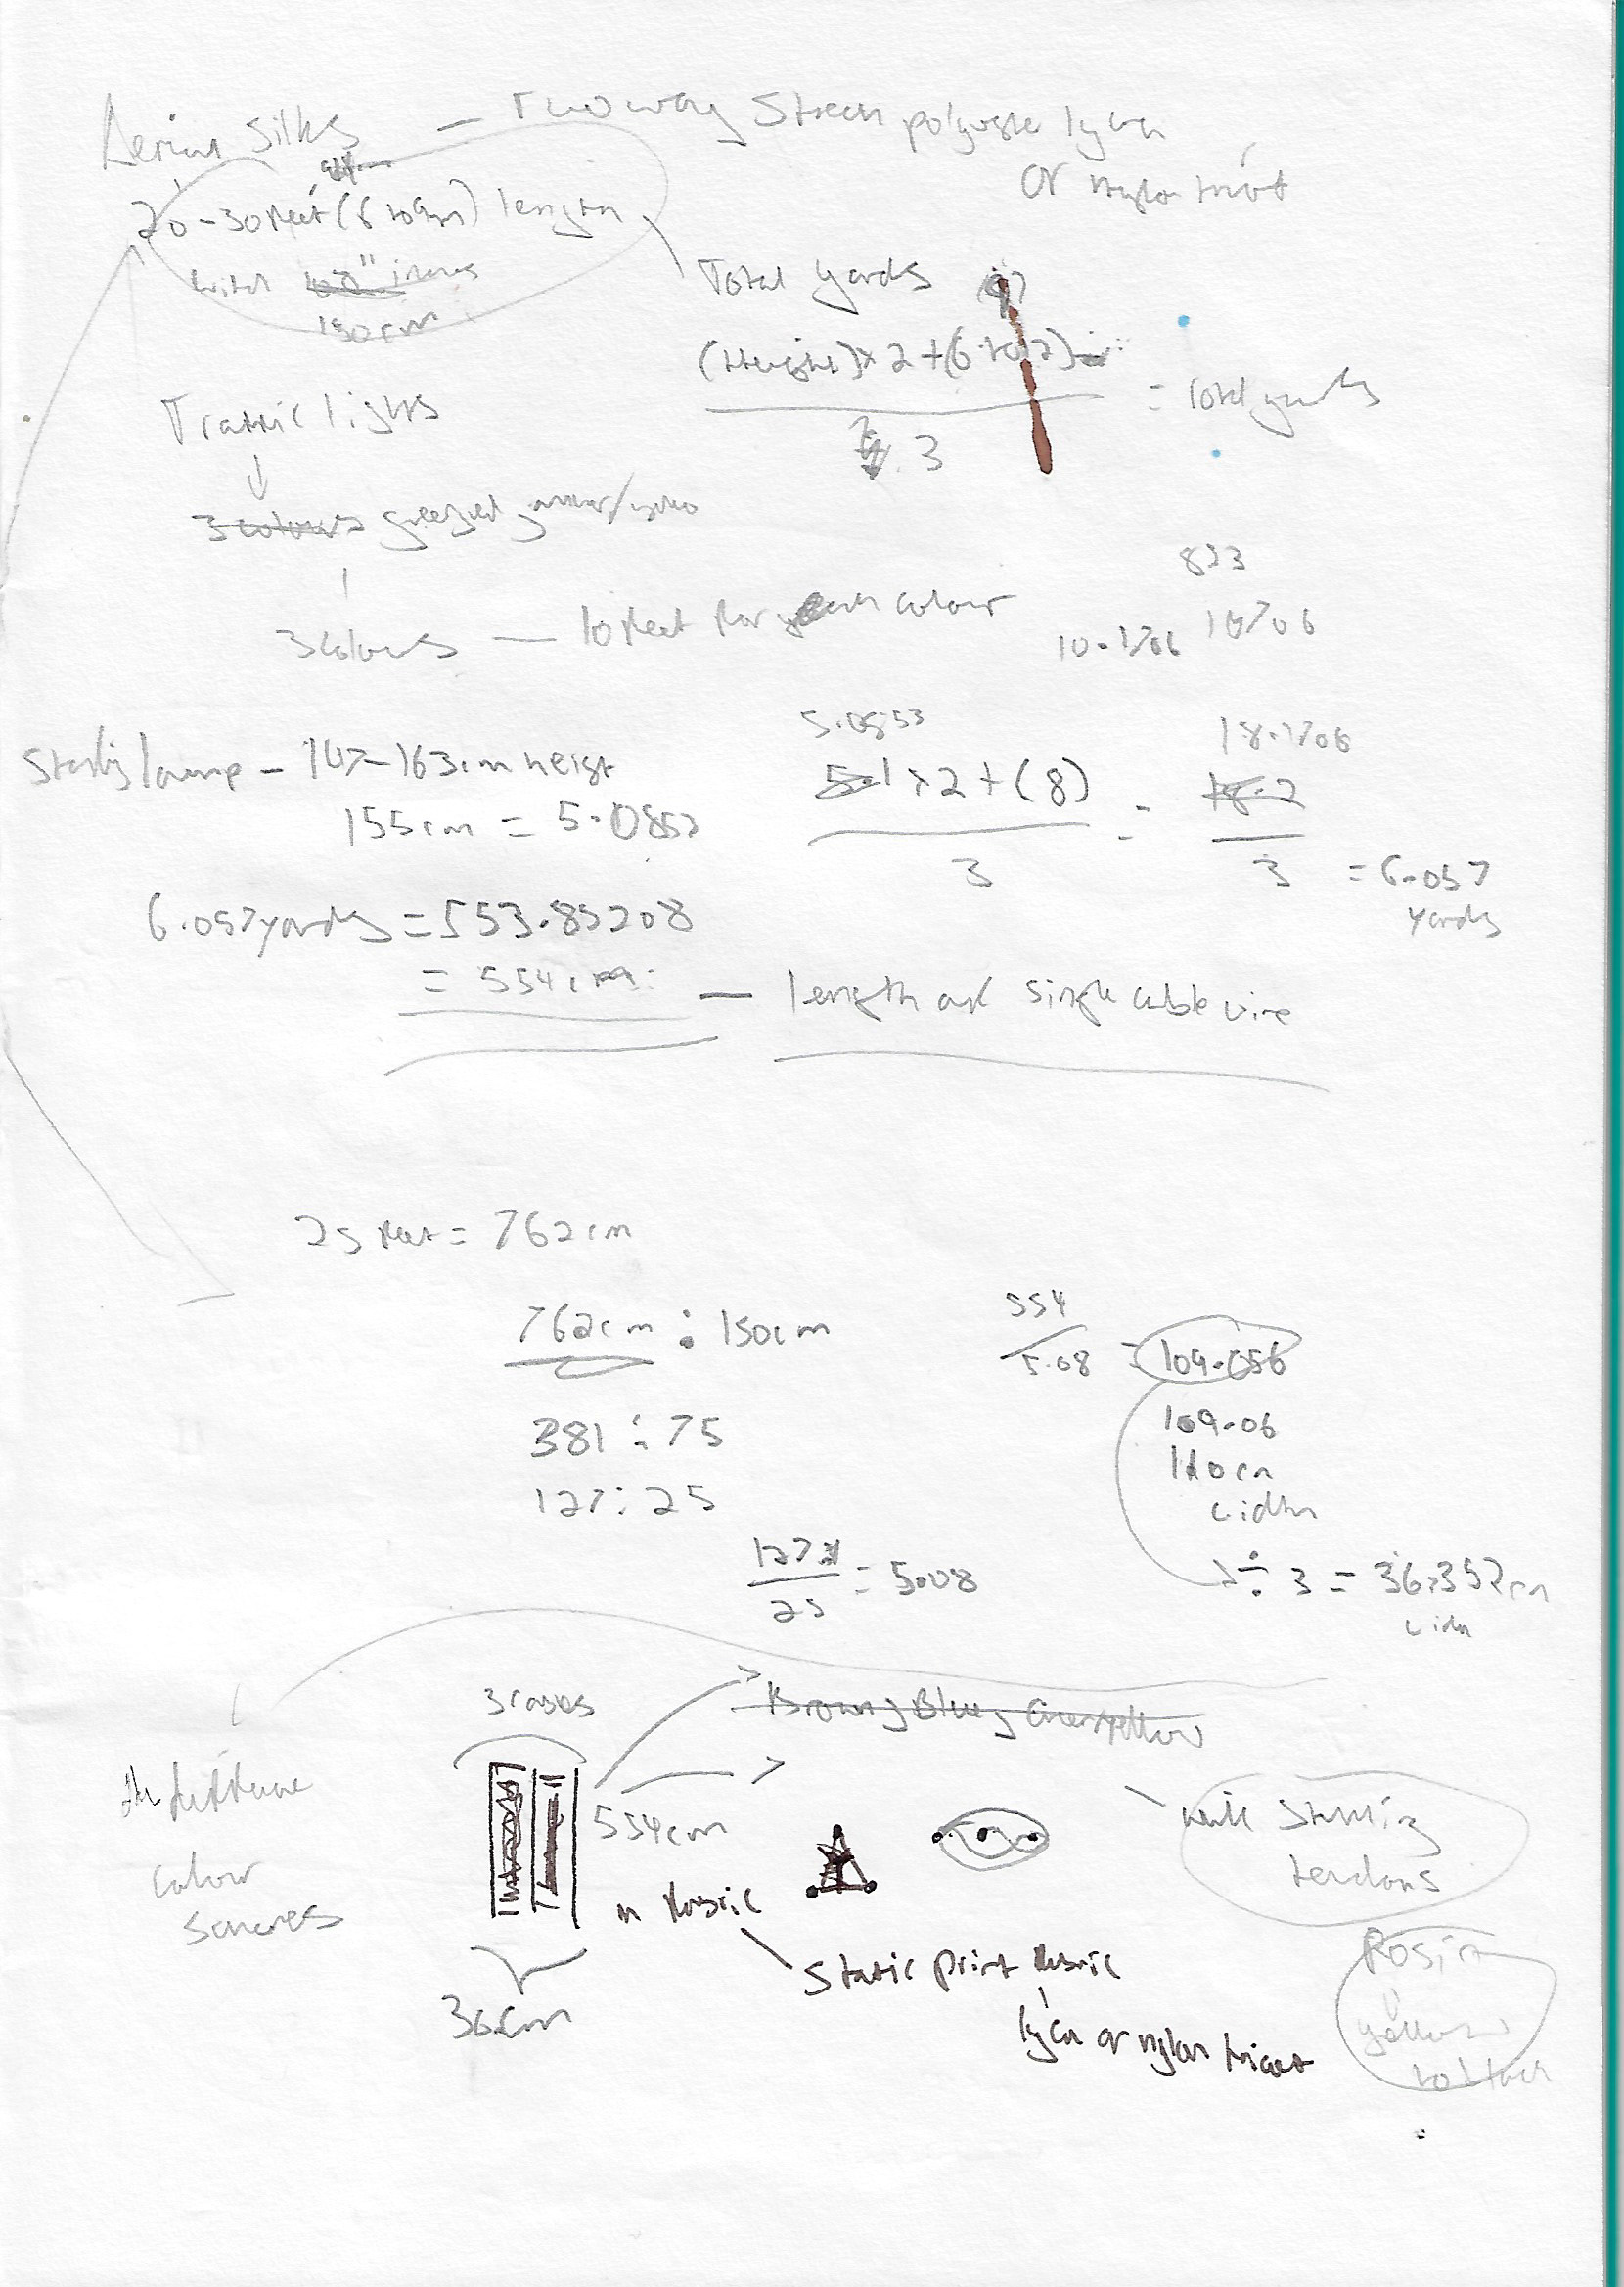 Aerial Silks — Two way Strech polyester lycra
or nylon tricot
20-30 feet (6 to 9m) length
width
150cm
Total yards
(Height) × 2 + (6 to
3
= Total yards
Traffic lights
3 colours green/red amber/yellow
3 colours — 10 feet for each colour
823
10.1706 10706
Standing lamp - 147-163cm height
155cm = 5.0853
5.0853
5.1 × 2 + (8)
3
=
18.1706
18.2
3
= 6.057
yards
6.057 yards = 553.85208
= 554cm — length of single cable wire
25 feet = 762cm
762cm : 150cm
381 : 75
127 : 25
127
25
= 5.08
554
5.08
= 109.056
109.06
110cm
width
÷ 3 = 36.352cm
width
3 cables
Brown, Blue, Green yellow
554cm
in fabric
36cm
Static print fabric
lycra or nylon tricot
different
colour
Rosin
yellow
to black